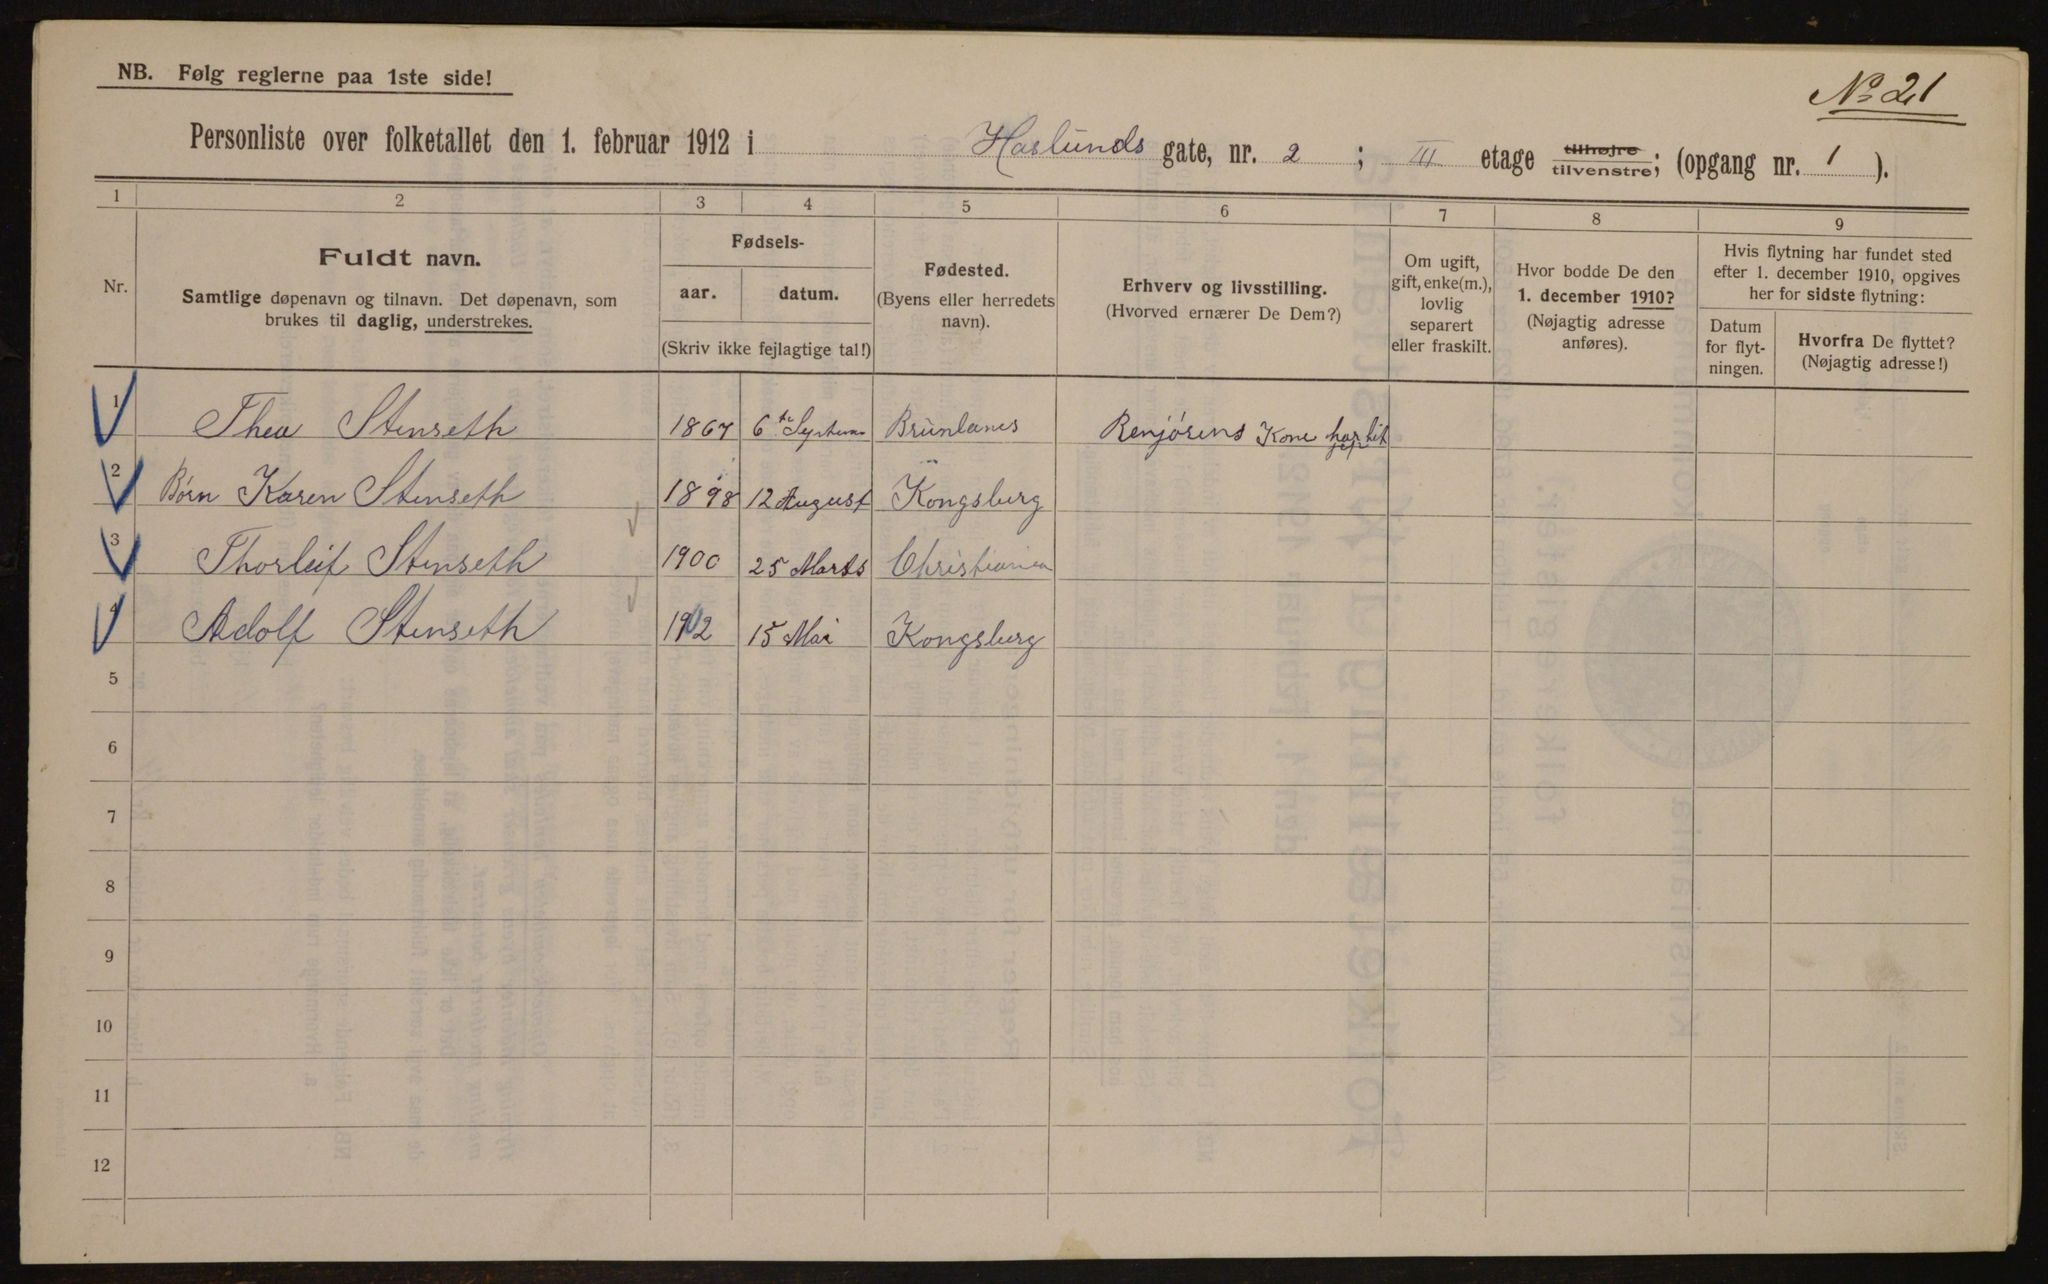 NB. Følg reglerne paa 1ste side!
No 21
Personliste over folketallet den 1. februar 1912 i Haslunds gate, nr. 2 ; III etage tilhøjre tilvenstre; (opgang nr. 1 ).
1 2 3 4 5 6 7 8 9
Nr.
Fuldt navn.
Samtlige døpenavn og tilnavn. Det døpenavn, som
brukes til daglig, understrekes.
Fødsels-
aar. datum.
(Skriv ikke fejlagtige tal!)
Fødested.
(Byens eller herredets
navn).
Erhverv og livsstilling.
(Hvorved ernærer De Dem?)
Om ugift,
gift, enke(m.),
lovlig
separert
eller fraskilt.
Hvor bodde De den
1. december 1910?
(Nøjagtig adresse
anføres).
Hvis flytning har fundet sted
efter 1. december 1910, opgives
her for sidste flytning:
Datum
for flyt-
ningen.
Hvorfra De flyttet?
(Nøjagtig adresse!)
1 Thea Stenseth 1867 6te Brunlanes Renjørens Kone
2 Børn Karen Stenseth 1898 12 August Kongsberg
3 Thorleif Stenseth 1900 25 Marts Christiania
4 Adolf Stenseth 1902 15 Mai Kongsberg
5
6
7
8
9
10
11
12